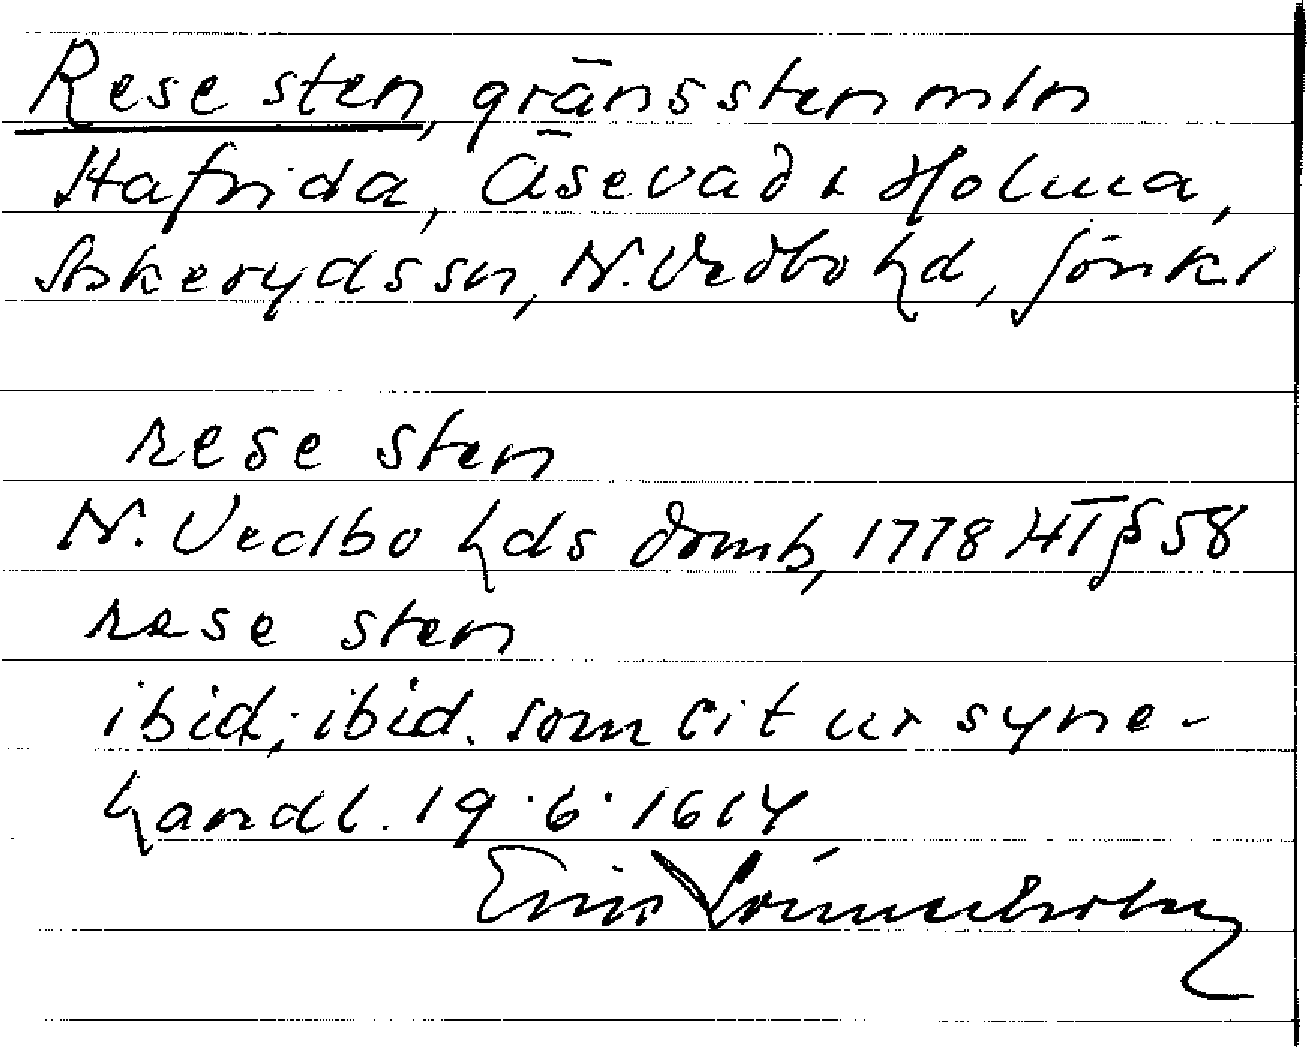 Rese sten, gränssten mln
Hafrida, Äsevad & Holma,
Askeryds sn, N. Vedbo hd, Jönk l
rese sten
N. Vedbo hds domb, 1778 HT § 58
rese sten
ibid; ibid. som cit ur syne-
handl. 19·6·1614